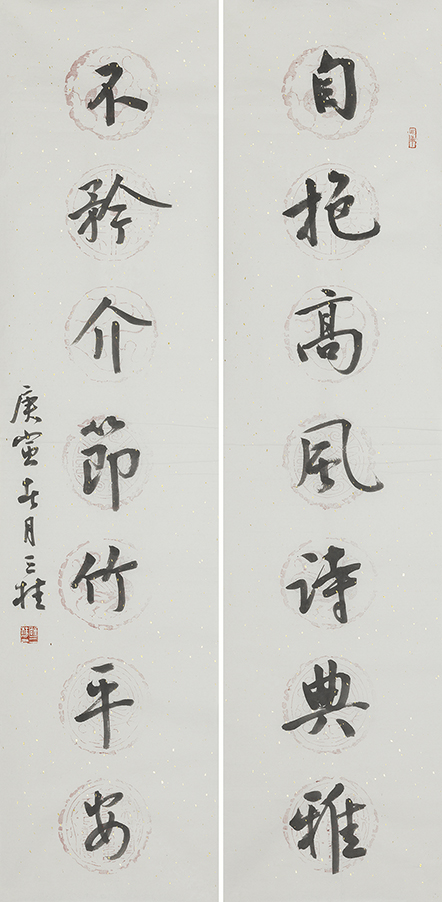 自抱高風詩典雅
不矜介節竹平安
庚寅春月三桂